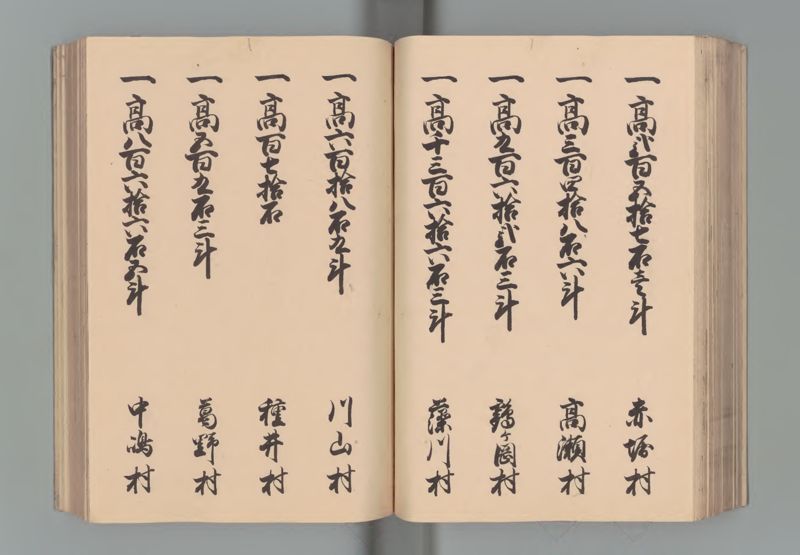 一高弐百五拾七石壱斗 赤堀村
一高三百四拾八石六斗 高瀬村
一高九百六拾弐石三斗 鶴ヶ岡村
一高十三百六拾六石三斗 藻川村
一高六百拾八石九斗 川山村
一高百七拾石 種井村
一高五百九石三斗 葛野村
一高八百六拾六石五斗 中嶋村